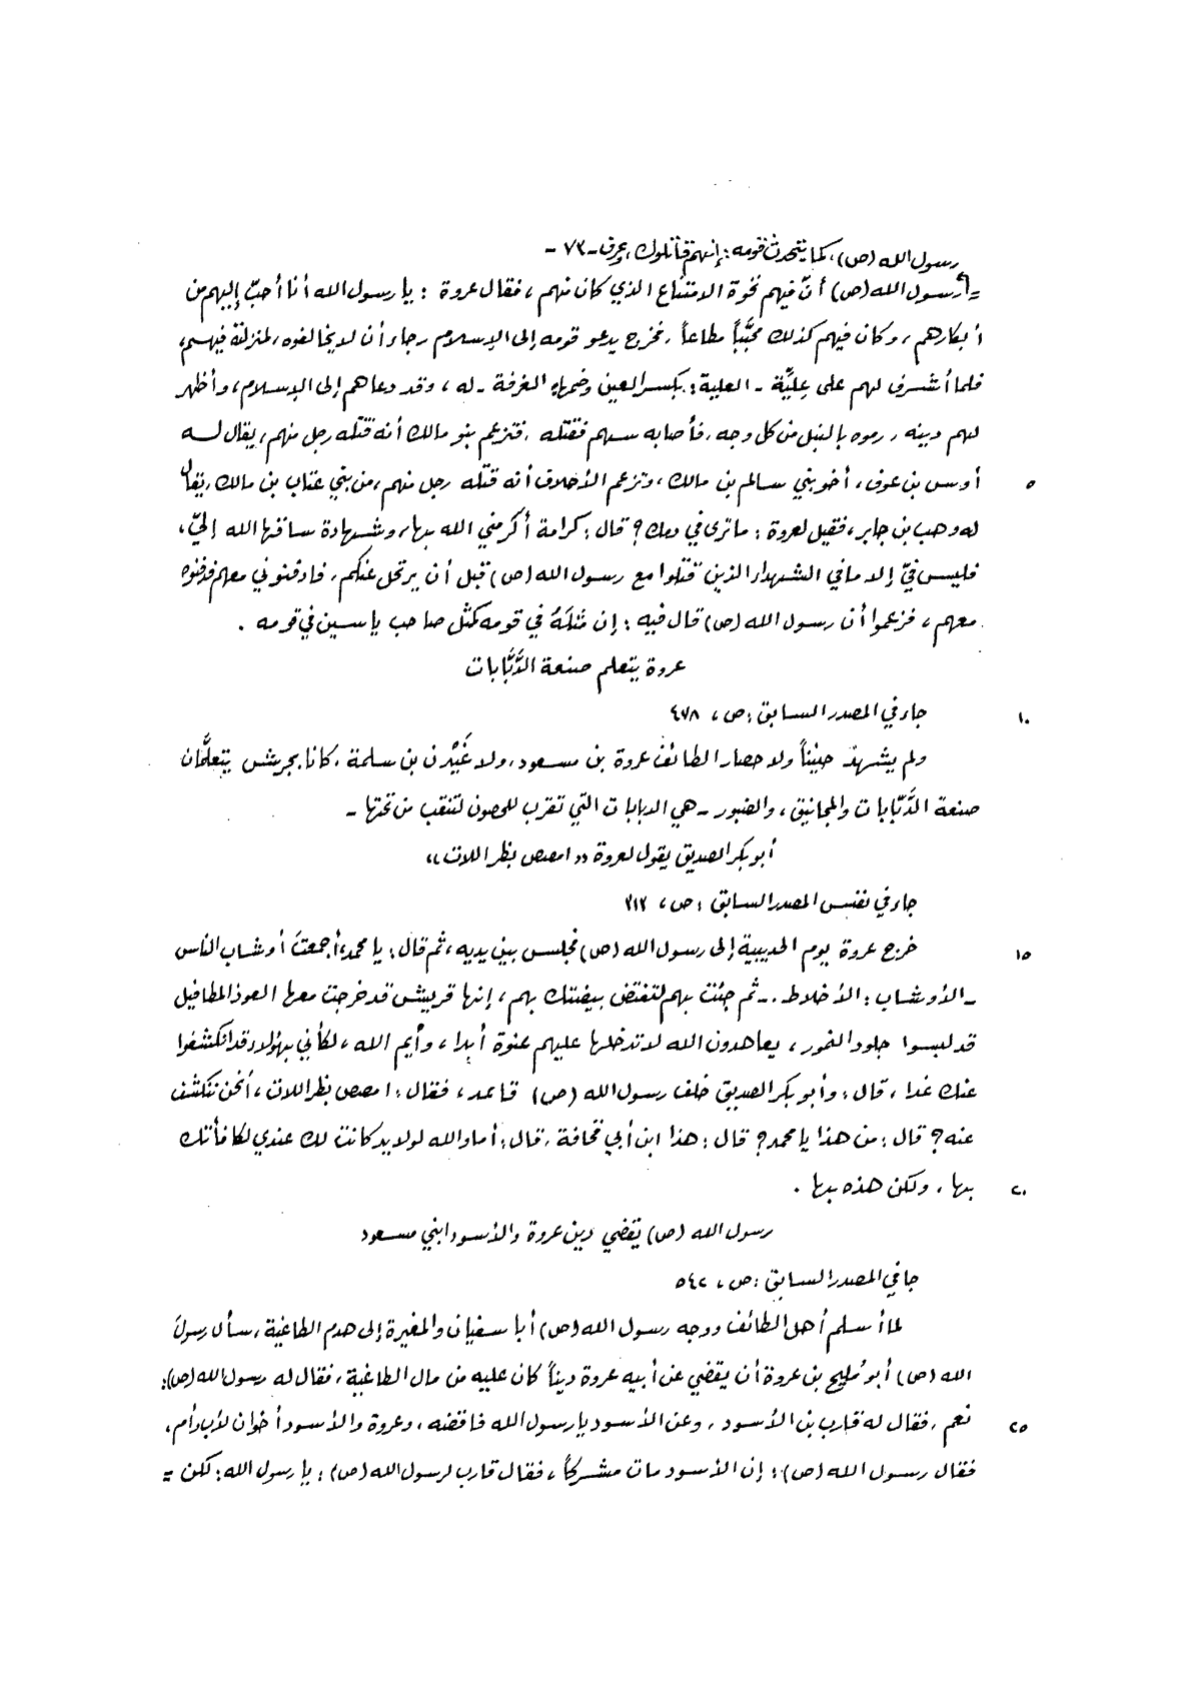 رسول الله (ص)، كما يتحدث قومه: إنهم قاتلوك، وعرف -٧٣-
= رسول الله (ص) أنّ فيهم نخوة الامتناع الذي كان منهم، فقال عروة : يا رسول الله أنا أحبّ إليهم من
أبكارهم، وكان فيهم كذلك محبَّباً مطاعاً، فخرج يدعو قومه إلى الإسلام رجاء أن لا يخالفوه، لمنزلته فيهم،
فلما أشرف لهم على عِلِيَّة - العلية: بكسر العين وضمها، الغرفة - له، وقد دعاهم إلى الإسلام، وأظهر
لهم دينه، رموه بالنبل من كل وجه، فأصابه سهم فقتله، فتزعم بنو مالك أنه قتله رجل منهم، يقال له
٥ أوس بن عوف، أخو بني سالم بن مالك، وتزعم الأحلاف أنه قتله رجل منهم، من بني عتاب بن مالك، يقال
له وهب بن جابر، فقيل لعروة : ما ترى في دمك؟ قال: كرامة أكرمني الله بها، وشهادة ساقها الله إليّ،
فليس فيّ إلا ما في الشهداء الذين قتلوا مع رسول الله (ص) قبل أن يرتحل عنكم، فادفنوني معهم فدفنوه
معهم، فزعموا أن رسول الله (ص) قال فيه : إن مَثَلَهُ في قومه كمثل صاحب ياسين في قومه .
عروة يتعلم صنعة الدَّبَّابات
١٠ جاء في المصدر السابق :ص، ٤٧٨
ولم يشهد حنيناً ولا حصار الطائف عروة بن مسعود، ولا غَيْلان بن سلمة، كانا بجرش يتعلَّمان
صنعة الدَّبَّابات والمجانيق، والضبور - هي الدبابات التي تقرب للحصون لتنقب من تحتها -
أبو بكر الصديق يقول لعروة «امصص بظر اللات»
جاء في نفس المصدر السابق :ص، ٣١٣
١٥ خرج عروة يوم الحديبية إلى رسول الله (ص) فجلس بين يديه، ثم قال: يا محمد، أجمعتَ أوشاب الناس
- الأوشاب : الأخلاط .- ثم جئت بهم لتفتض بيضتك بهم، إنها قريش قد خرجت معها العوذ المطافيل
قد لبسوا جلود النمور، يعاهدون الله لا تدخلها عليهم عنوة أبدا، وأيم الله، لكأني بهؤلاء قد انكشفوا
عنك غدا، قال: وأبو بكر الصديق خلف رسول الله (ص) قاعد، فقال: امصص بظر اللات، أنحن ننكشف
عنه؟ قال: من هذا يا محمد؟ قال: هذا ابن أبي قحافة، قال: أما والله لولا يد كانت لك عندي لكافأتك
٢٠ بها، ولكن هذه بها .
رسول الله (ص) يقضي دين عروة والأسود ابني مسعود
جا في المصدر السابق :ص، ٥٤٢
لما أسلم أهل الطائف ووجه رسول الله (ص) أبا سفيان والمغيرة إلى هدم الطاغية، سأل رسولَ
الله (ص) أبو مُليح بن عروة أن يقضي عن أبيه عروة ديناً كان عليه من مال الطاغية، فقال له رسول الله (ص):
٢٥ نعم، فقال له قارب بن الأسود، وعن الأسود يا رسول الله فاقضه، وعروة والأسود أخوان لأب وأم،
فقال رسول الله (ص): إن الأسود مات مشركاً، فقال قارب لرسول الله (ص): يا رسول الله: لكن =